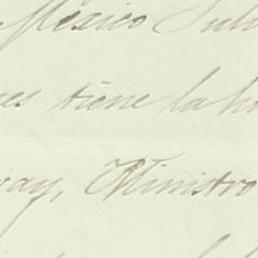 Mexico Juli
es tiene la ho
way, Ministro